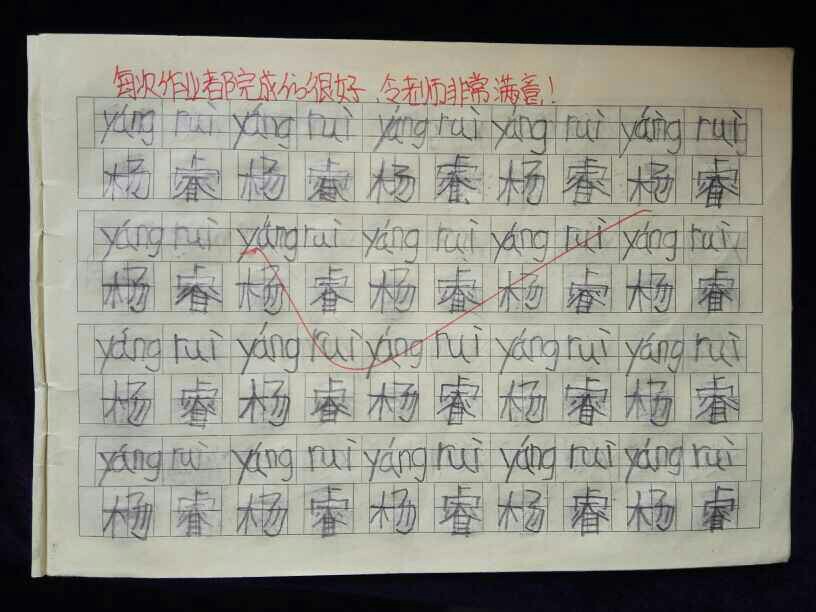 每次作业都完成的很好，令老师非常满意！
yáng ruì yáng ruì yáng ruì yáng ruì yáng ruì
杨 睿 杨 睿 杨 睿 杨 睿 杨 睿
yáng ruì yáng ruì yáng ruì yáng ruì yáng ruì
杨 睿 杨 睿 杨 睿 杨 睿 杨 睿
yáng ruì yáng ruì yáng ruì yáng ruì yáng ruì
杨 睿 杨 睿 杨 睿 杨 睿 杨 睿
yáng ruì yáng ruì yáng ruì yáng ruì yáng ruì
杨 睿 杨 睿 杨 睿 杨 睿 杨 睿